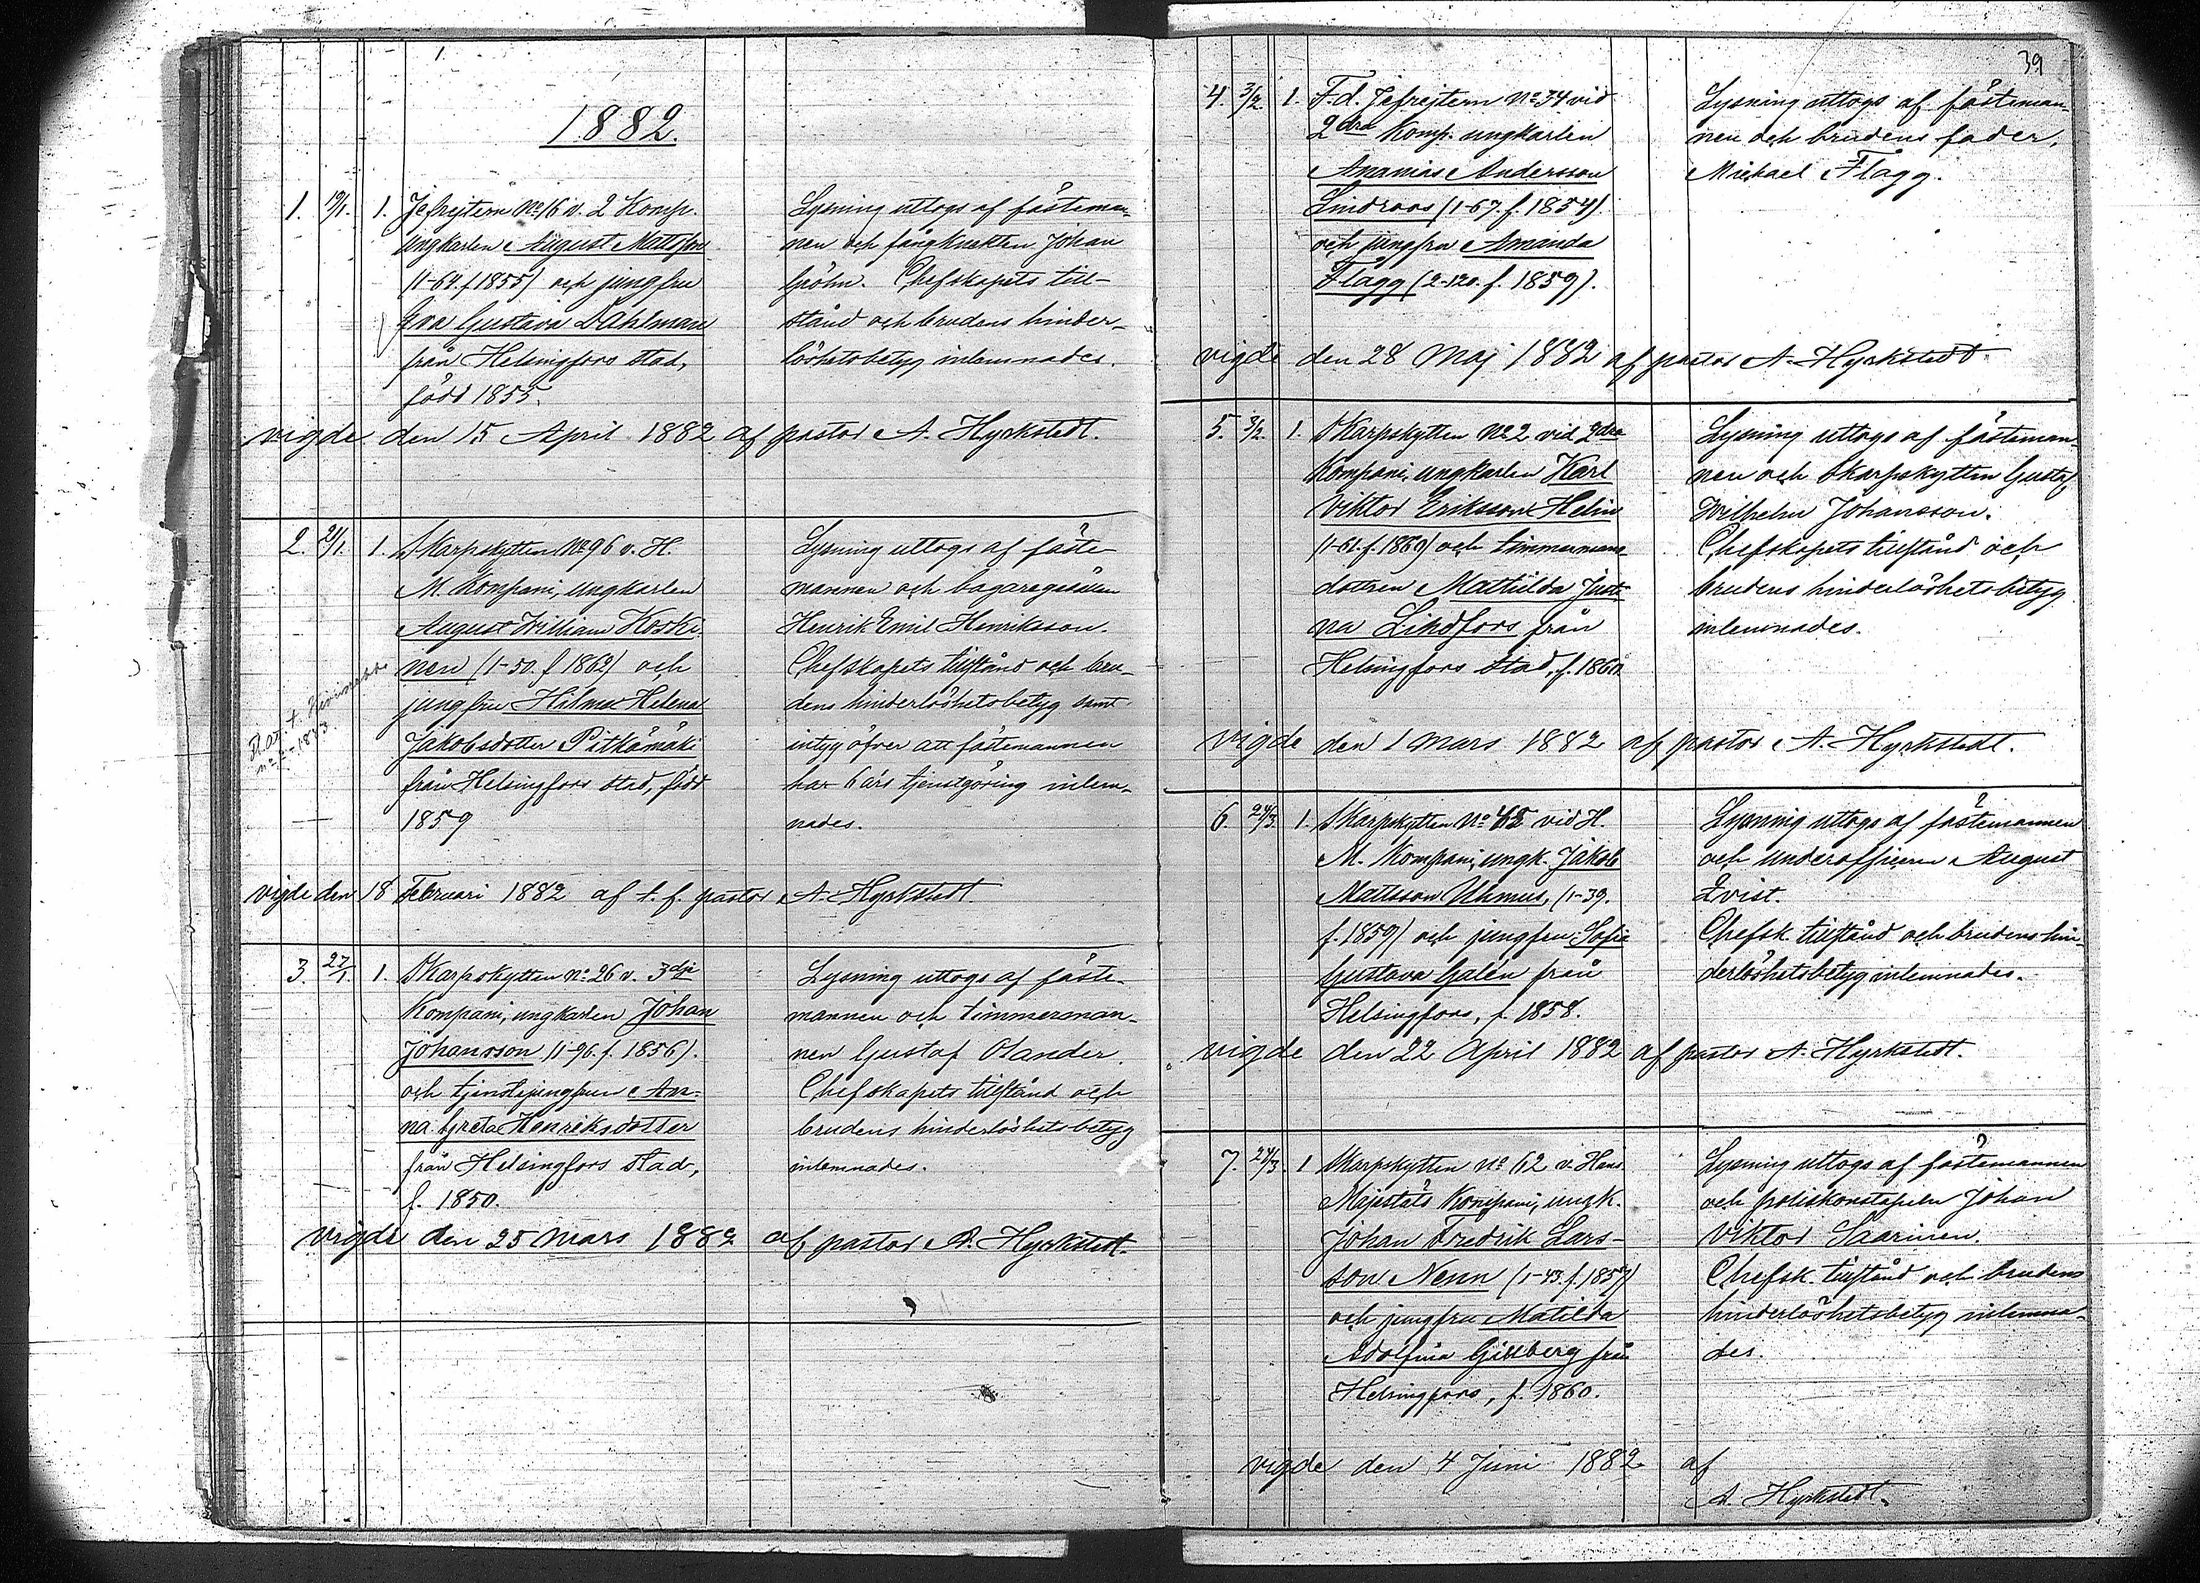 1882.
1. 19/1. 1. Jefrejtern No 16 v. 2 Komp.
ungkarlen August Mattsson
(1-64. f 1855) och jungfru
Eva Gustava Dahlman
från Helsingfors stad,
född 1855.
Lysning uttogs af fästeman-
nen och fångknekten Johan
Sjöhn. Chefskapets till-
stånd och brudens hinder-
löshetsbetyg inlemnades.
vigde den 15 April 1882 af pastor A. Hyrkstedt.
2. 21/1. 1. Skarpskytten No 96 v. H.
M. Kompani, ungkarlen
August William Koski-
nen (1-50. f 1862) och
jungfru Hilma Helena
Jakobsdotter Pitkämäki
från Helsingfors stad, född
1859
Lysning uttogs af fäste-
mannen och bagaregesällen
Henrik Emil Henriksson.
Chefskapets tillstånd och bru-
dens hinderlöshetsbetyg samt
intyg öfver att fästemannen
har 6 års tjenstgöring inlem-
nades.
vigde den 18 Februari 1882 af t. f. pastor A. Hyrkstedt.
3. 27/1. 1. Skarpskytten No 26 v. 3dje
Kompani, ungkarlen Johan
Johansson (1-96. f. 1856).
och tjenstejungfrun An-
na Greta Henriksdotter
från Helsingfors stad,
f. 1850.
Lysning uttogs af fäste-
mannen och timmerman-
nen Gustaf Olander.
Chefskapets tillstånd och
brudens hinderlöshetsbetyg
inlemnades.
vigde den 25 Mars 1882 af pastor A. Hyrkstedt.
39
4. 3/2. 1. F.d. Jefrejtern No 34 vid
2dra Komp. ungkarlen
Ananias Andersson
Lindroos (1-67. f. 1854).
och jungfru Amanda
Flagg (2-120. f. 1859).
Lysning uttogs af fästeman-
nen och brudens fader,
Mickael Flagg.
vigde den 28 Maj 1882 af pastor A. Hyrkstedt.
5. 3/2. 1. Skarpskytten No 2 vid 2dra
Kompani, ungkarlen Karl
Viktor Eriksson Helin
(1-61. f. 1860) och timmermans
dottren Mathilda Justi-
na Lindfors från
Helsingfors stad, f. 1860.
Lysning uttogs af fästeman-
nen och Skarpskytten Gustaf
Wilhelm Johansson.
Chefskapets tillstånd och
brudens hinderlöshetsbetyg
inlemnades.
vigde den 1 Mars 1882 af pastor A. Hyrkstedt.
6. 24/3. 1. Skarpskytten No 45 vid H.
M. Kompani, ungk. Jakob
Mattsson Uhmus, (1-39.
f. 1859) och jungfru Sofia
Gustava Galén från
Helsingfors, f. 1858.
Lysning uttogs af fästemannen
och underofficern August
Qvist.
Chefsk. tillstånd och brudens hin-
derlöshetsbetyg inlemnades.
vigde den 22 April 1882 af pastor A. Hyrkstedt.
7. 24/3. 1 Skarpskytten No 62 v. Hans
Majestäts Kompani, ungk.
Johan Fredrik Lars-
son Nenn (1-43. f. 1857)
och jungfru Matilda
Adolfina Gillberg från
Helsingfors, f. 1860.
Lysning uttogs af fästemannen
och poliskonstapeln Johan
Viktor Saarinen.
Chefsk. tillstånd och brudens
hinderlöshetsbetyg inlemna-
des.
vigde den 4 Juni 1882 af
A. Hyrkstedt.